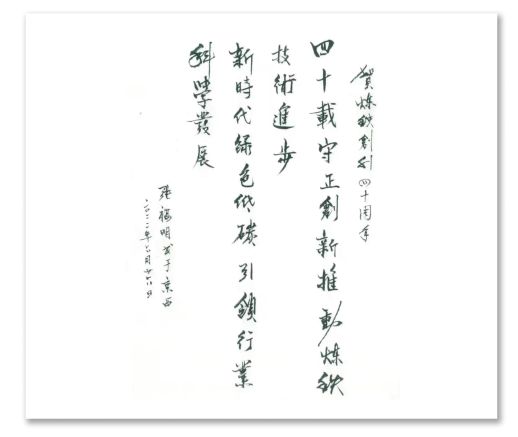 賀炼鉄創刊四十周年
四十載守正創新推動炼鉄
技術進步
新時代緑色低碳引鎖行業
科學發展
張福明书于京西
二〇二二年六月廿六日